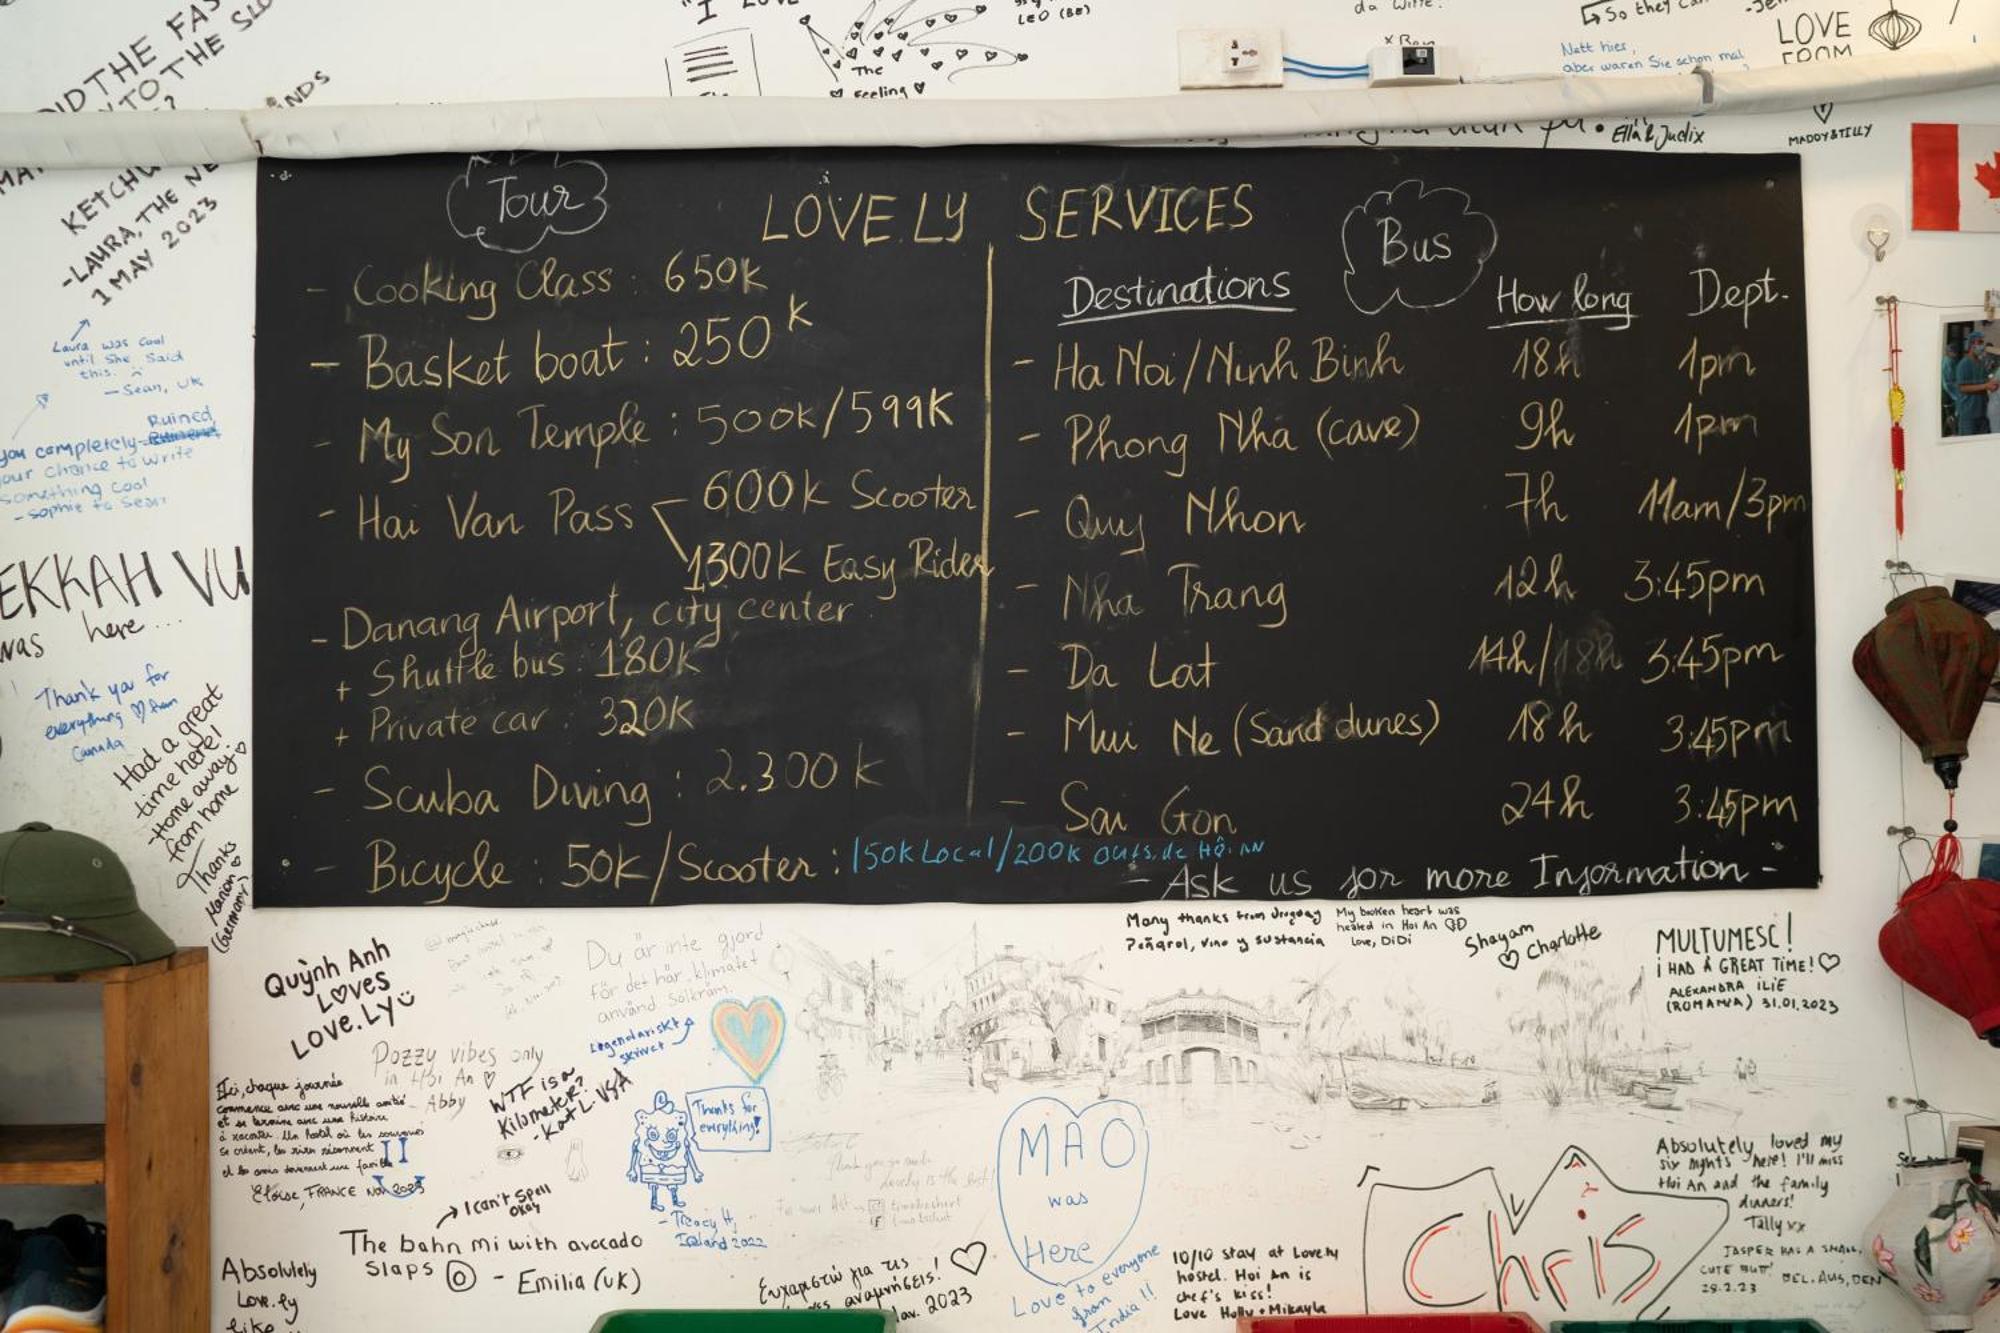 LOVE.LY SERVICES
Tour
- Cooking Class : 650k
- Basket boat : 250k
- My Son Temple : 500k/599k
- Hai Van Pass
600k Scooter
1300k Easy Rider
- Danang Airport, city center
+ Shuttle bus : 180k
+ Private car : 320k
- Scuba Diving : 2.300k
- Bicycle : 50k/Scooter : 150k Local/200k outside Hội AN
Bus
Destinations How long Dept.
- Ha Noi/Ninh Binh 18h 1pm
- Phong Nha (cave) 9h 1pm
- Quy Nhon 7h 11am/3pm
- Nha Trang 12h 3:45pm
- Da Lat 14h/18h 3:45pm
- Mui Ne (Sand dunes) 18h 3:45pm
- Sai Gon 24h 3:45pm
- Ask us for more Information -
LEO (BE)
The
Feeling
So they can
Nett hier,
aber waren Sie schon mal
LOVE
FROM
Ella & Judix
MADDY & TILLY
DID THE FAS
TO THE SLO
-LAURA, THE NE
1 MAY 2023
Laura was cool
until She said
this.
- Sean, UK
Ruined
you completely
your chance to write
something cool
- Sophie to Sean
EKKAH VU
was here...
Thank you for
everything ♡ from
Canada
Had a great
time here!
Home away
from home
Thanks
Marion
(Germany)
Quỳnh Anh
Loves
Love.Ly
Du är inte gjord
för det här klimatet
använd solkräm.
Legendariskt
skrivet
Pozzy vibes only
in Hoi An ♡
- Abby
WTF is a
Kilometer?
- Kat L. USA
Ici, chaque journée
commence avec une nouvelle amitié
et se termine avec une histoire
à raconter. Un hostel où les souvenirs
se créent, les rires résonnent
et les amis deviennent une famille
Eloïse, FRANCE Nov 2023
Thanks for
everything!
- Tracy H,
Ireland 2022
I can't spell
okay
The bahn mi with avocado
slaps
- Emilia (UK)
Absolutely
Love.ly
like
Ευχαριστώ για τις
αναμνήσεις!
2023
MAO
was
Here
Love to everyone
from
India !!
Many thanks from Uruguay
Peñarol, vino y sustancia
My broken heart was
healed in Hoi An
Love, DiDi
Shayam
♡ Charlotte
MULTUMESC!
I HAD A GREAT TIME! ♡
ALEXANDRA ILIE
(ROMANIA) 31.01.2023
10/10 stay at Lovely
hostel. Hoi An is
chef's kiss!
Love Holly + Mikayla
Chris
Absolutely loved my
six nights here! I'll miss
Hoi An and the family
dinners!
Tally xx
JASPER HAS A SMALL,
CUTE BUTT!
BEL, AUS, DEN
28.2.23